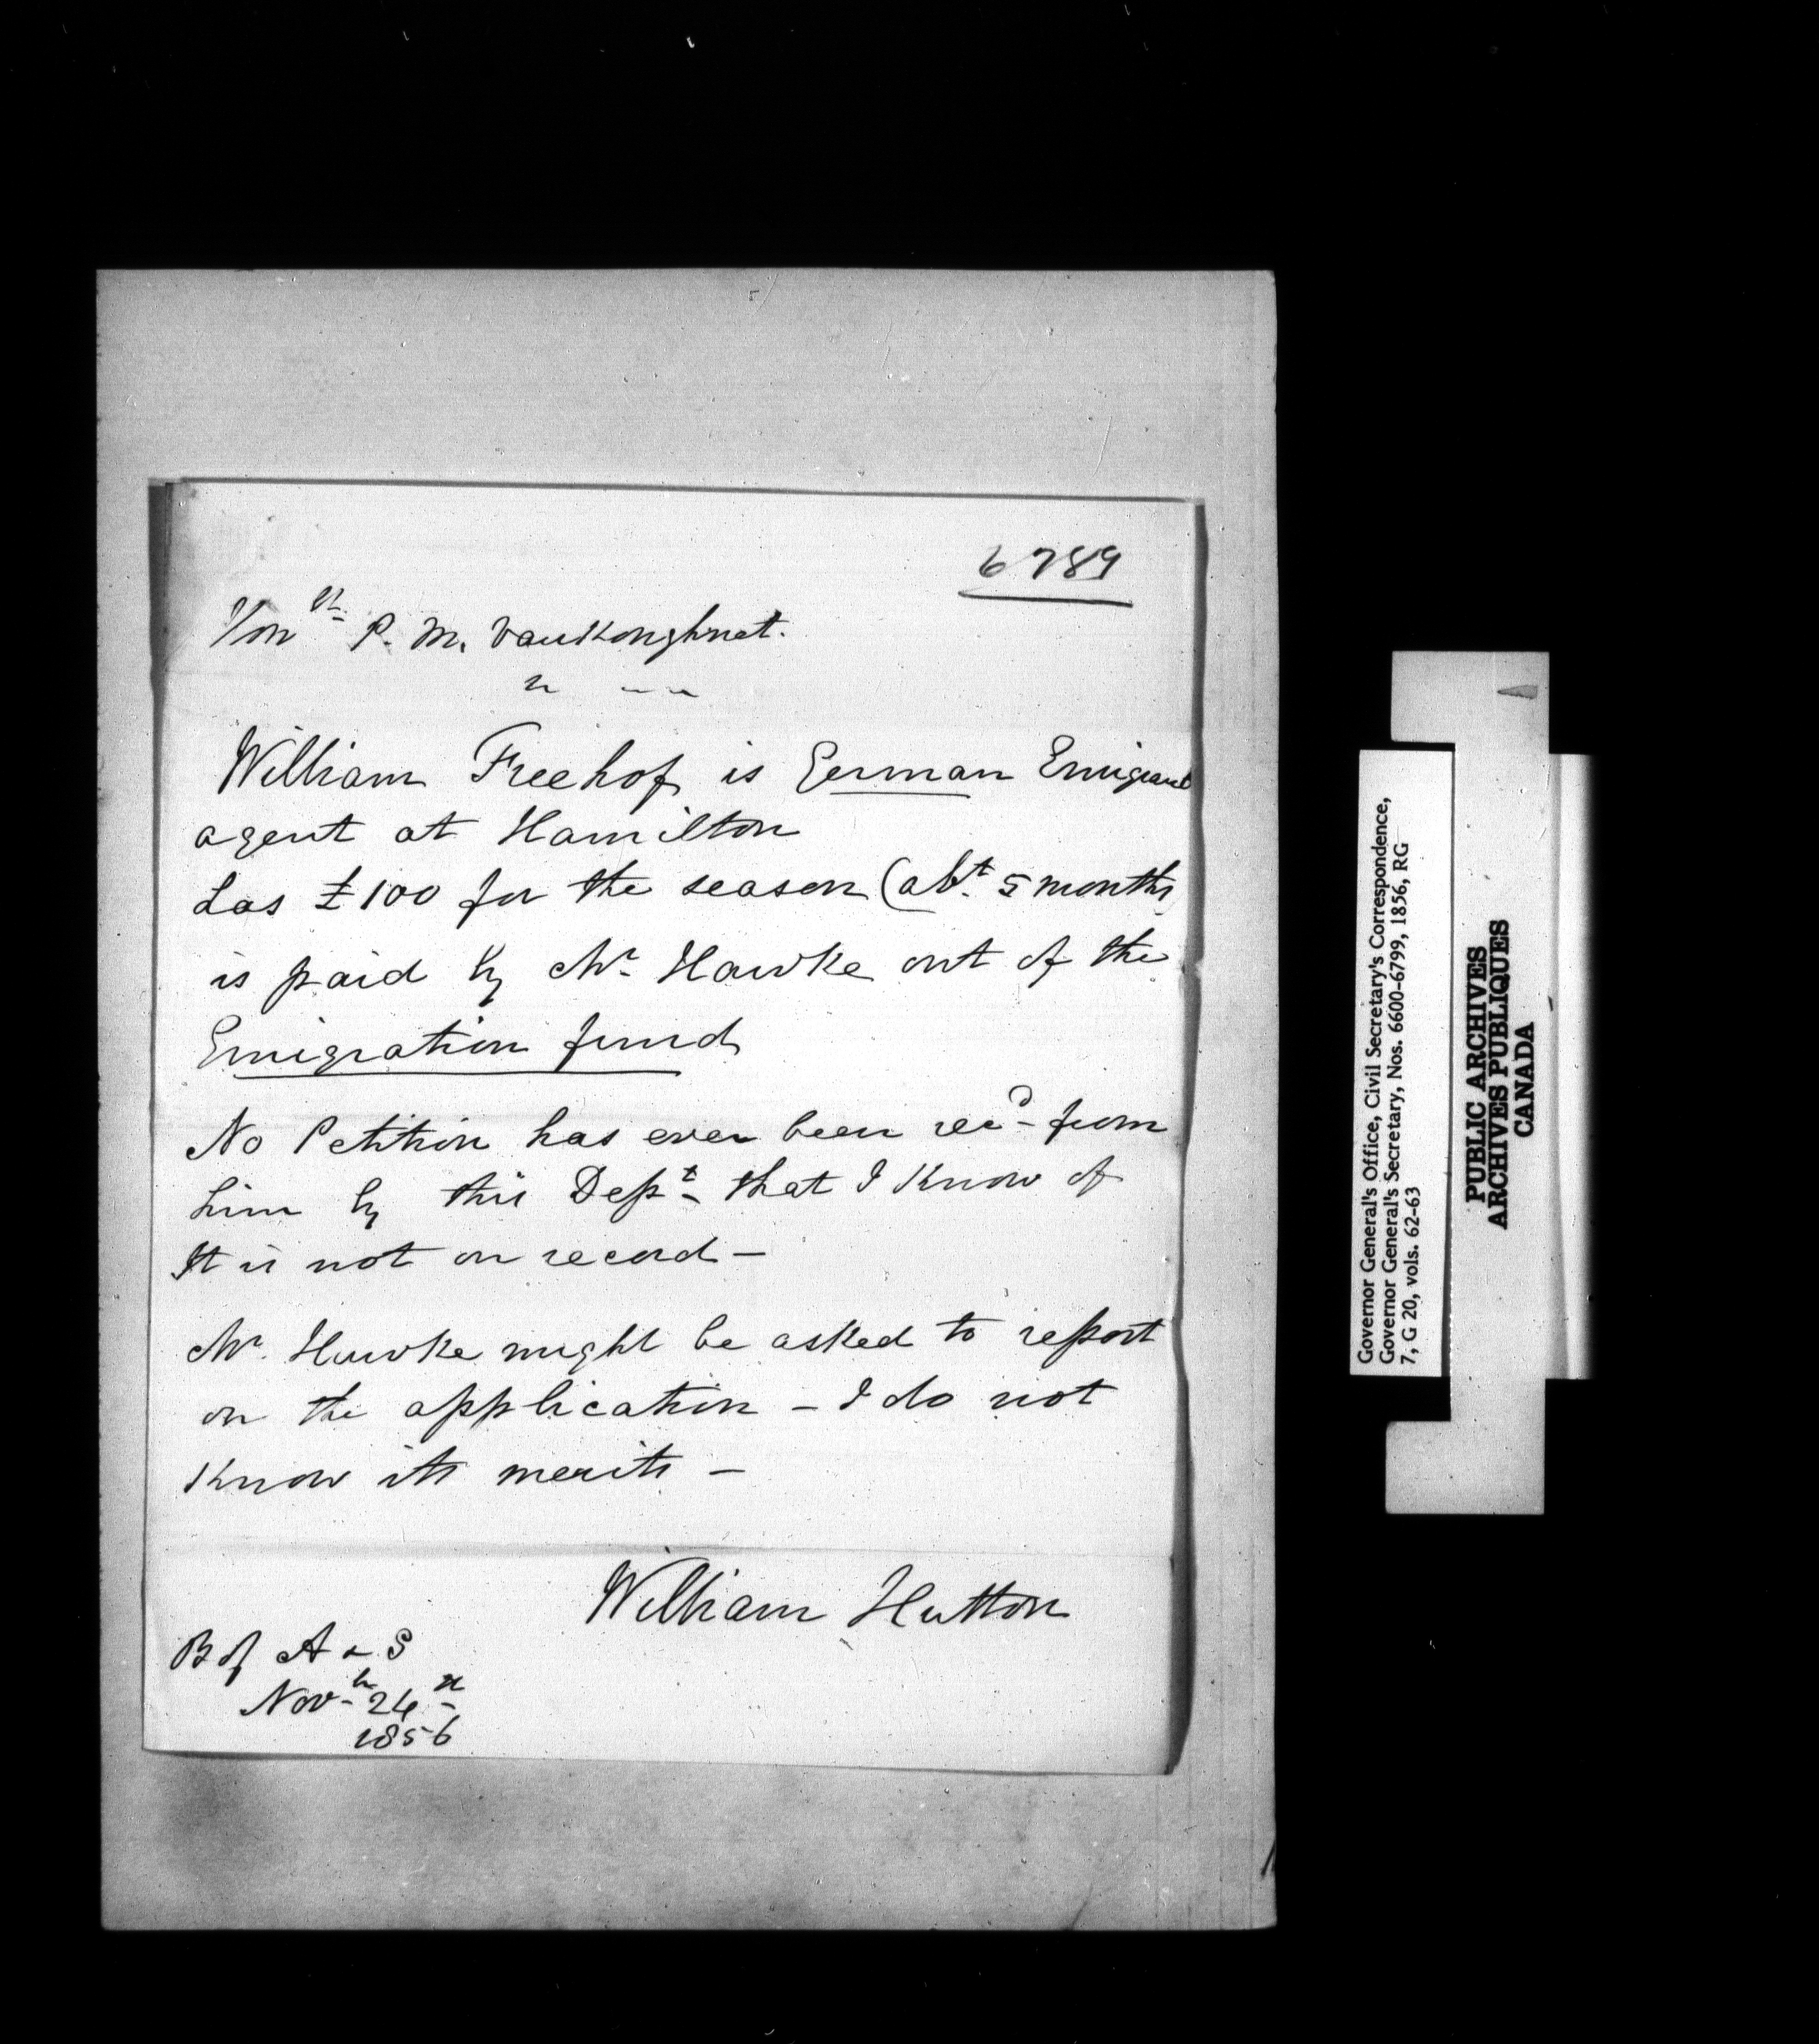 6789
Hon ble P. M. VanKoughnet.
William Freehof is German Emigrant
agent at Hamilton
has £100 for the season (abt. 5 months
is paid by Mr. Hawke out of the
Emigration fund
No Petition has ever been recd from
him by this Dept that I know of
It is not on record —
Mr. Hawke might be asked to report
on the application — I do not
Know its merits —
William Hutton
B of A & S
Novr 24th
1856
Governor General's Office, Civil Secretary's Correspondence,
Governor General's Secretary, Nos. 6600-6799, 1856, RG
7, G 20, vols. 62-63
PUBLIC ARCHIVES
ARCHIVES PUBLIQUES
CANADA